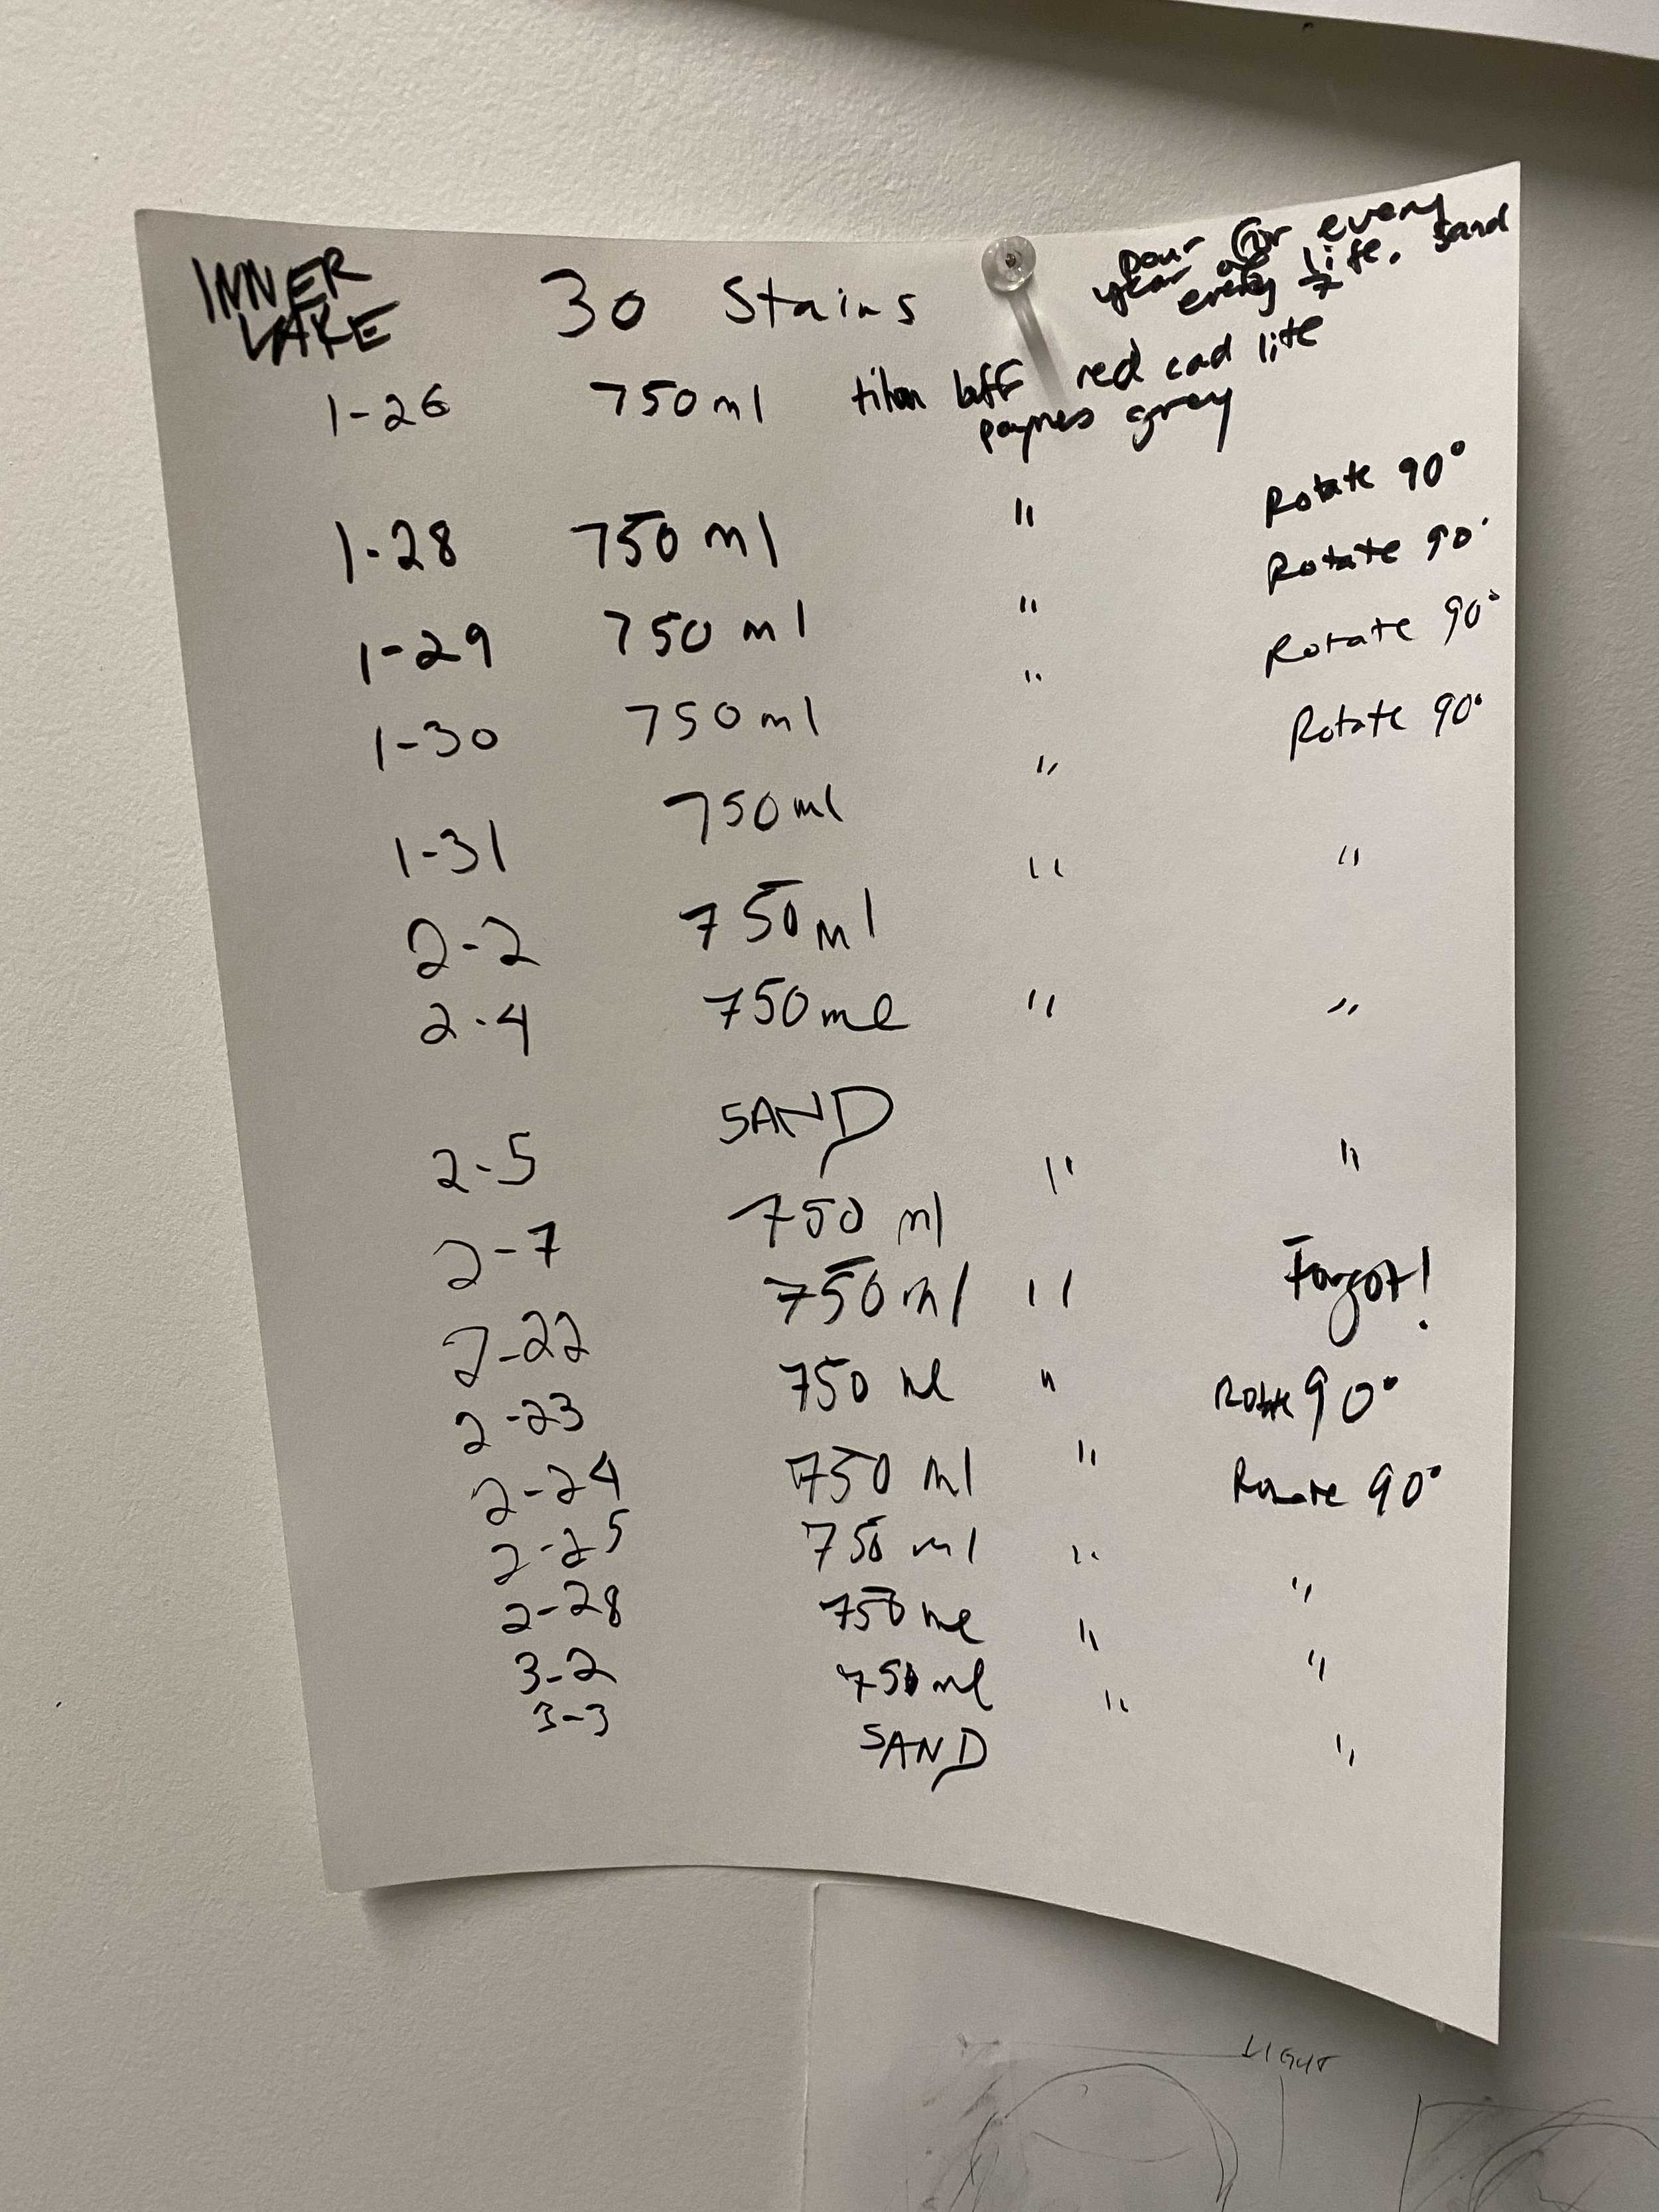 INNER
LAKE
30 Stains
pour for every
year of life. Sand
every 7
1-26 750ml titan buff red cad lite
paynes grey
1-28 750 ml " Rotate 90°
1-29 750 ml " Rotate 90°
1-30 750ml " Rotate 90°
1-31 750ml " Rotate 90°
2-2 750ml " "
2-4 750ml " "
SAND
2-5 750 ml " "
2-7 750ml " Forgot!
2-22 750 ml " Rotate 90°
2-23 750 ml " Rotate 90°
2-24 750 ml " "
2-25 750 ml " "
2-28 750 ml " "
3-2
3-3 SAND
LIGHT